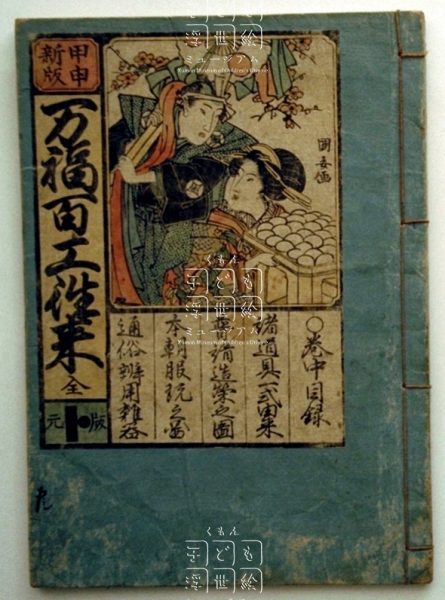 甲申
新版
万福百工往来 全
國安画
○巻中目録
諸道具一式由来
普請造榮之圖
本朝服玩之圖
通俗辨用雑
元
版
くもん
子ども
浮世絵
ミュージアム
Kumon Museum of Children's Ukiyo-e
くもん
子ども
浮世絵
ミュージアム
くもん
子ども
浮世絵